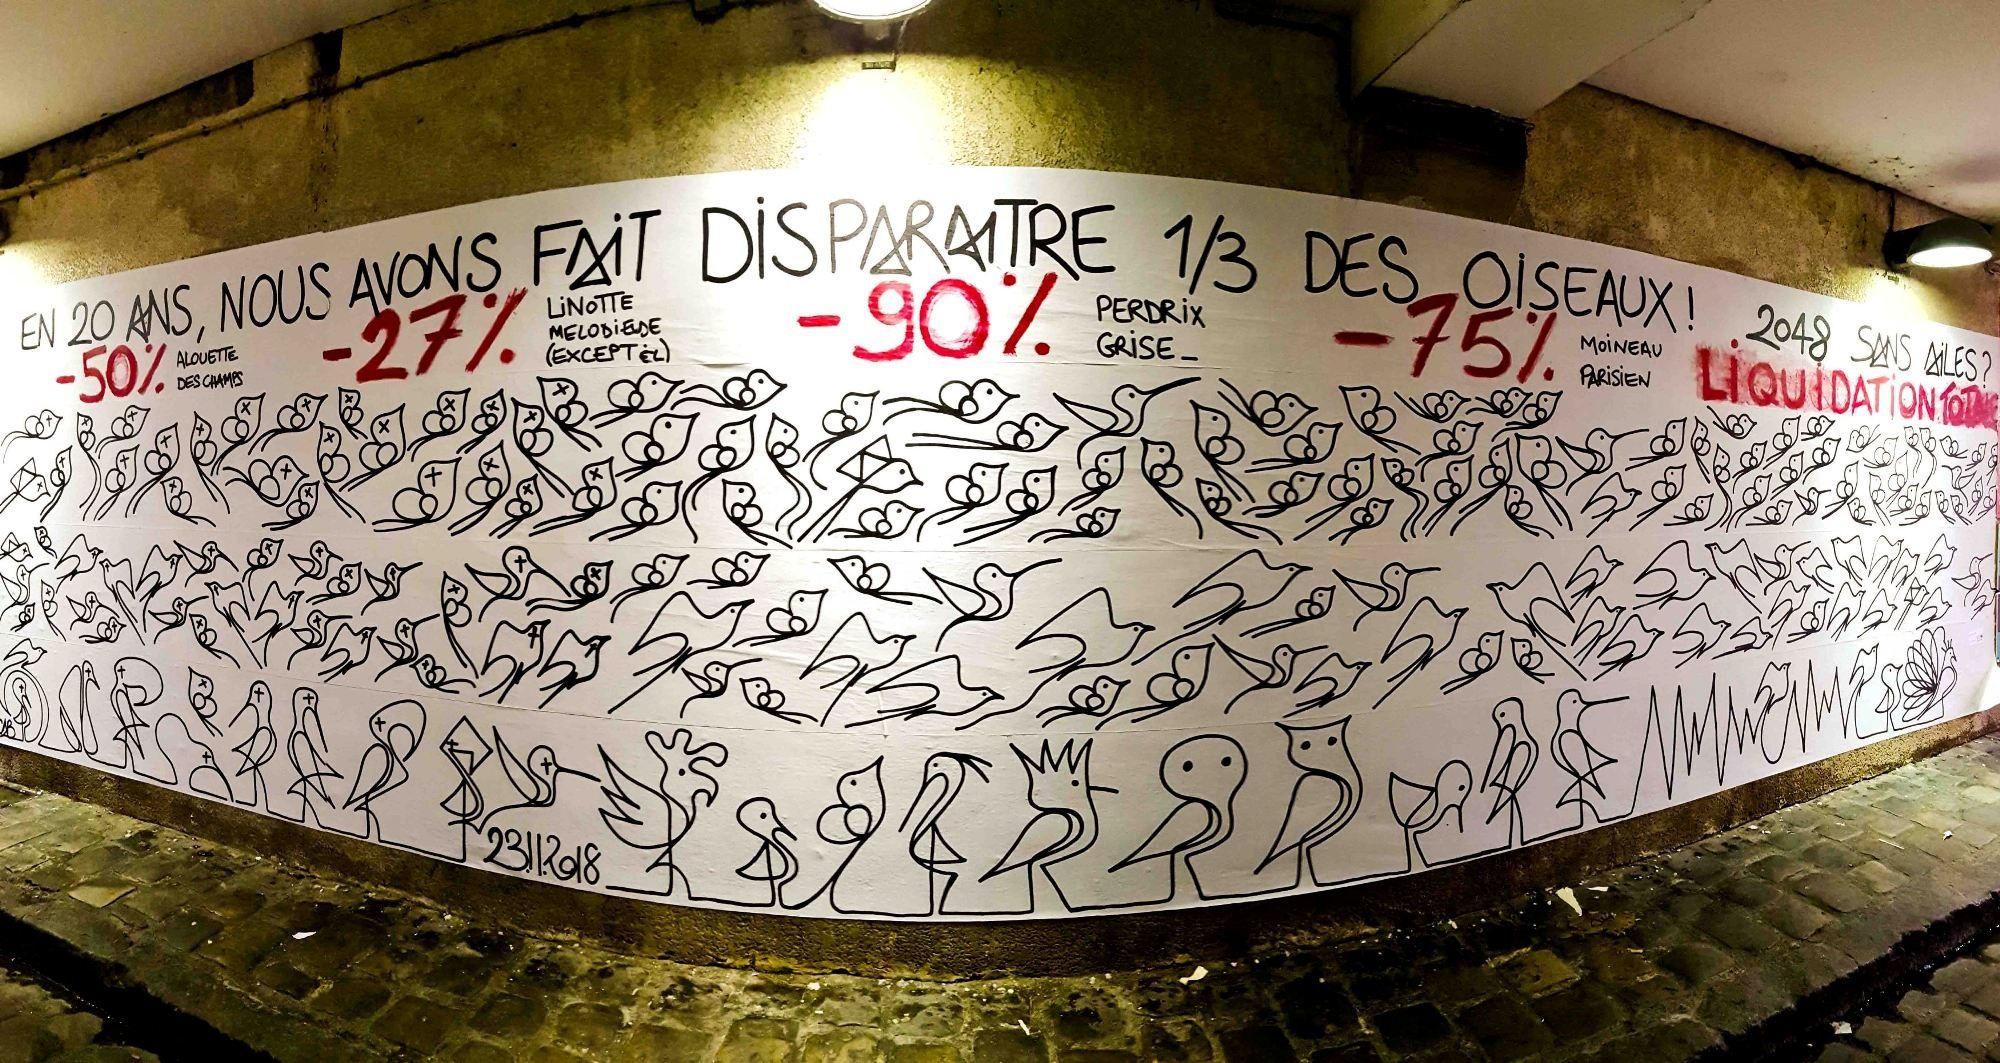 EN 20 ANS, NOUS AVONS FAIT DISPARAITRE 1/3 DES OISEAUX !
2048 SANS AILES ?
-50% ALOUETTE
DES CHAMPS
-27% LINOTTE
MELODIEUSE
-90% PERDRIX
GRISE_
-75% MOINEAU
PARISIEN
LIQUIDATION TOTALE
23.11.2018